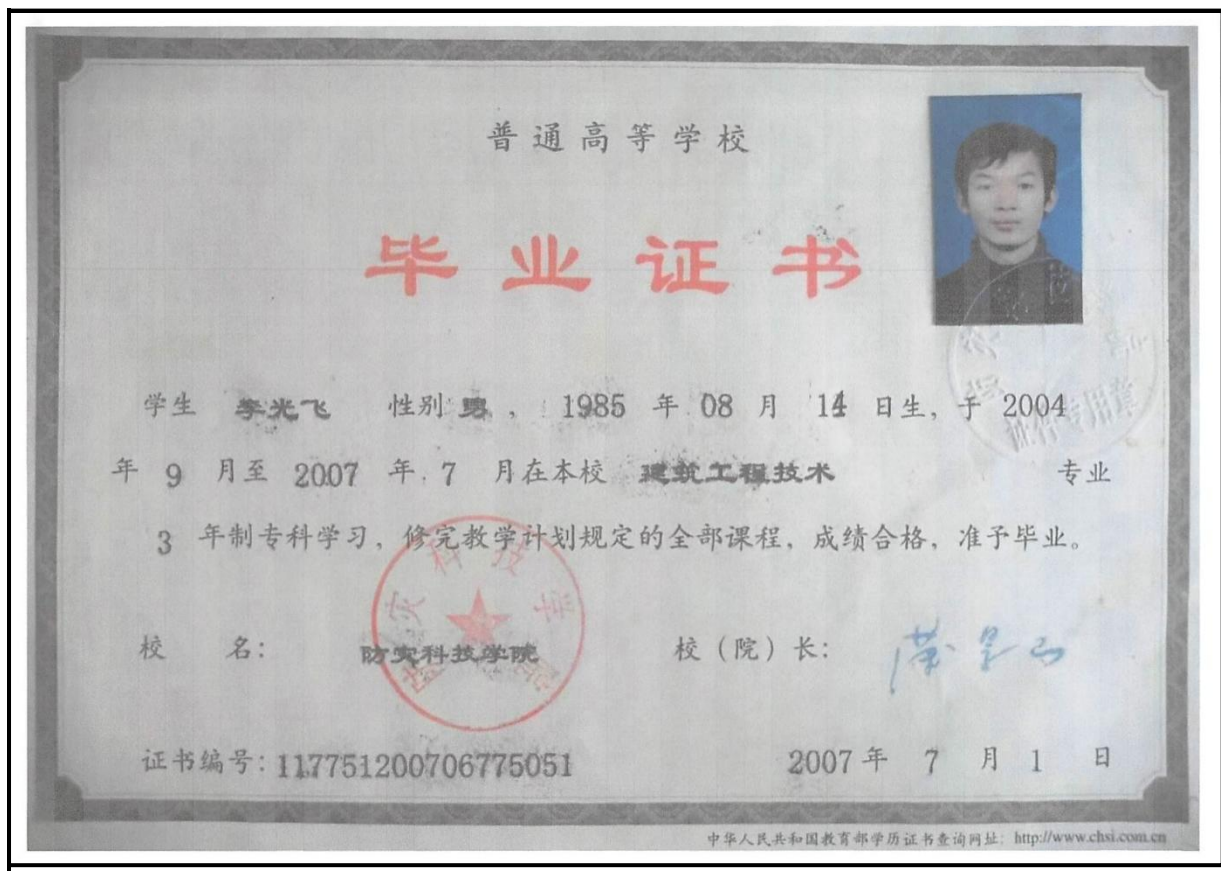 普通高等学校
毕业证书
学生 李光飞 性别 男 , 1985 年 08 月 14 日生, 于 2004
年 9 月至 2007 年 7 月在本校 建筑工程技术 专业
3 年制专科学习, 修完教学计划规定的全部课程, 成绩合格, 准予毕业。
校 名: 防灾科技学院 校（院）长:
防灾科技学院
证件专用章
证书编号: 117751200706775051 2007 年 7 月 1 日
中华人民共和国教育部学历证书查询网址: http://www.chsi.com.cn